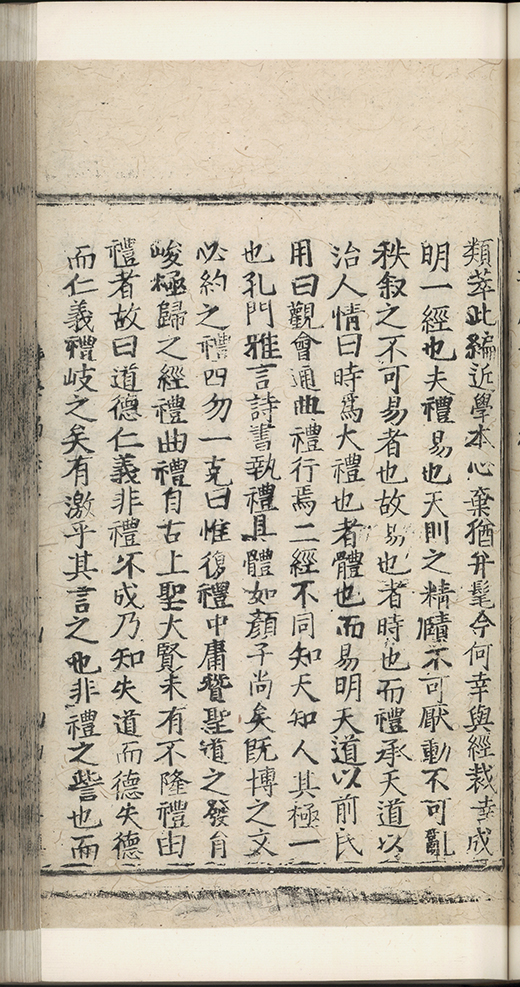 類萃此編近學本心棄猶弁髦今何幸與經裁幸成
明一經也夫禮易也天則之精賾不可厭動不可亂
秩敘之不可易者也故易也者時也而禮承天道以
治人情曰時爲大禮也者體也而易明天道以前氏
用曰觀會通曲禮行焉二經不同知天知人其極一
也孔門雅言詩書執禮具體如顏子尚矣既博之文
必約之禮四勿一克曰惟復禮中庸贊聖道之發育
峻極歸之經禮曲禮自古上聖大賢未有不隆禮由
禮者故曰道德仁義非禮不成乃知失道而德失德
而仁義禮岐之矣有激乎其言之也非禮之訾也而